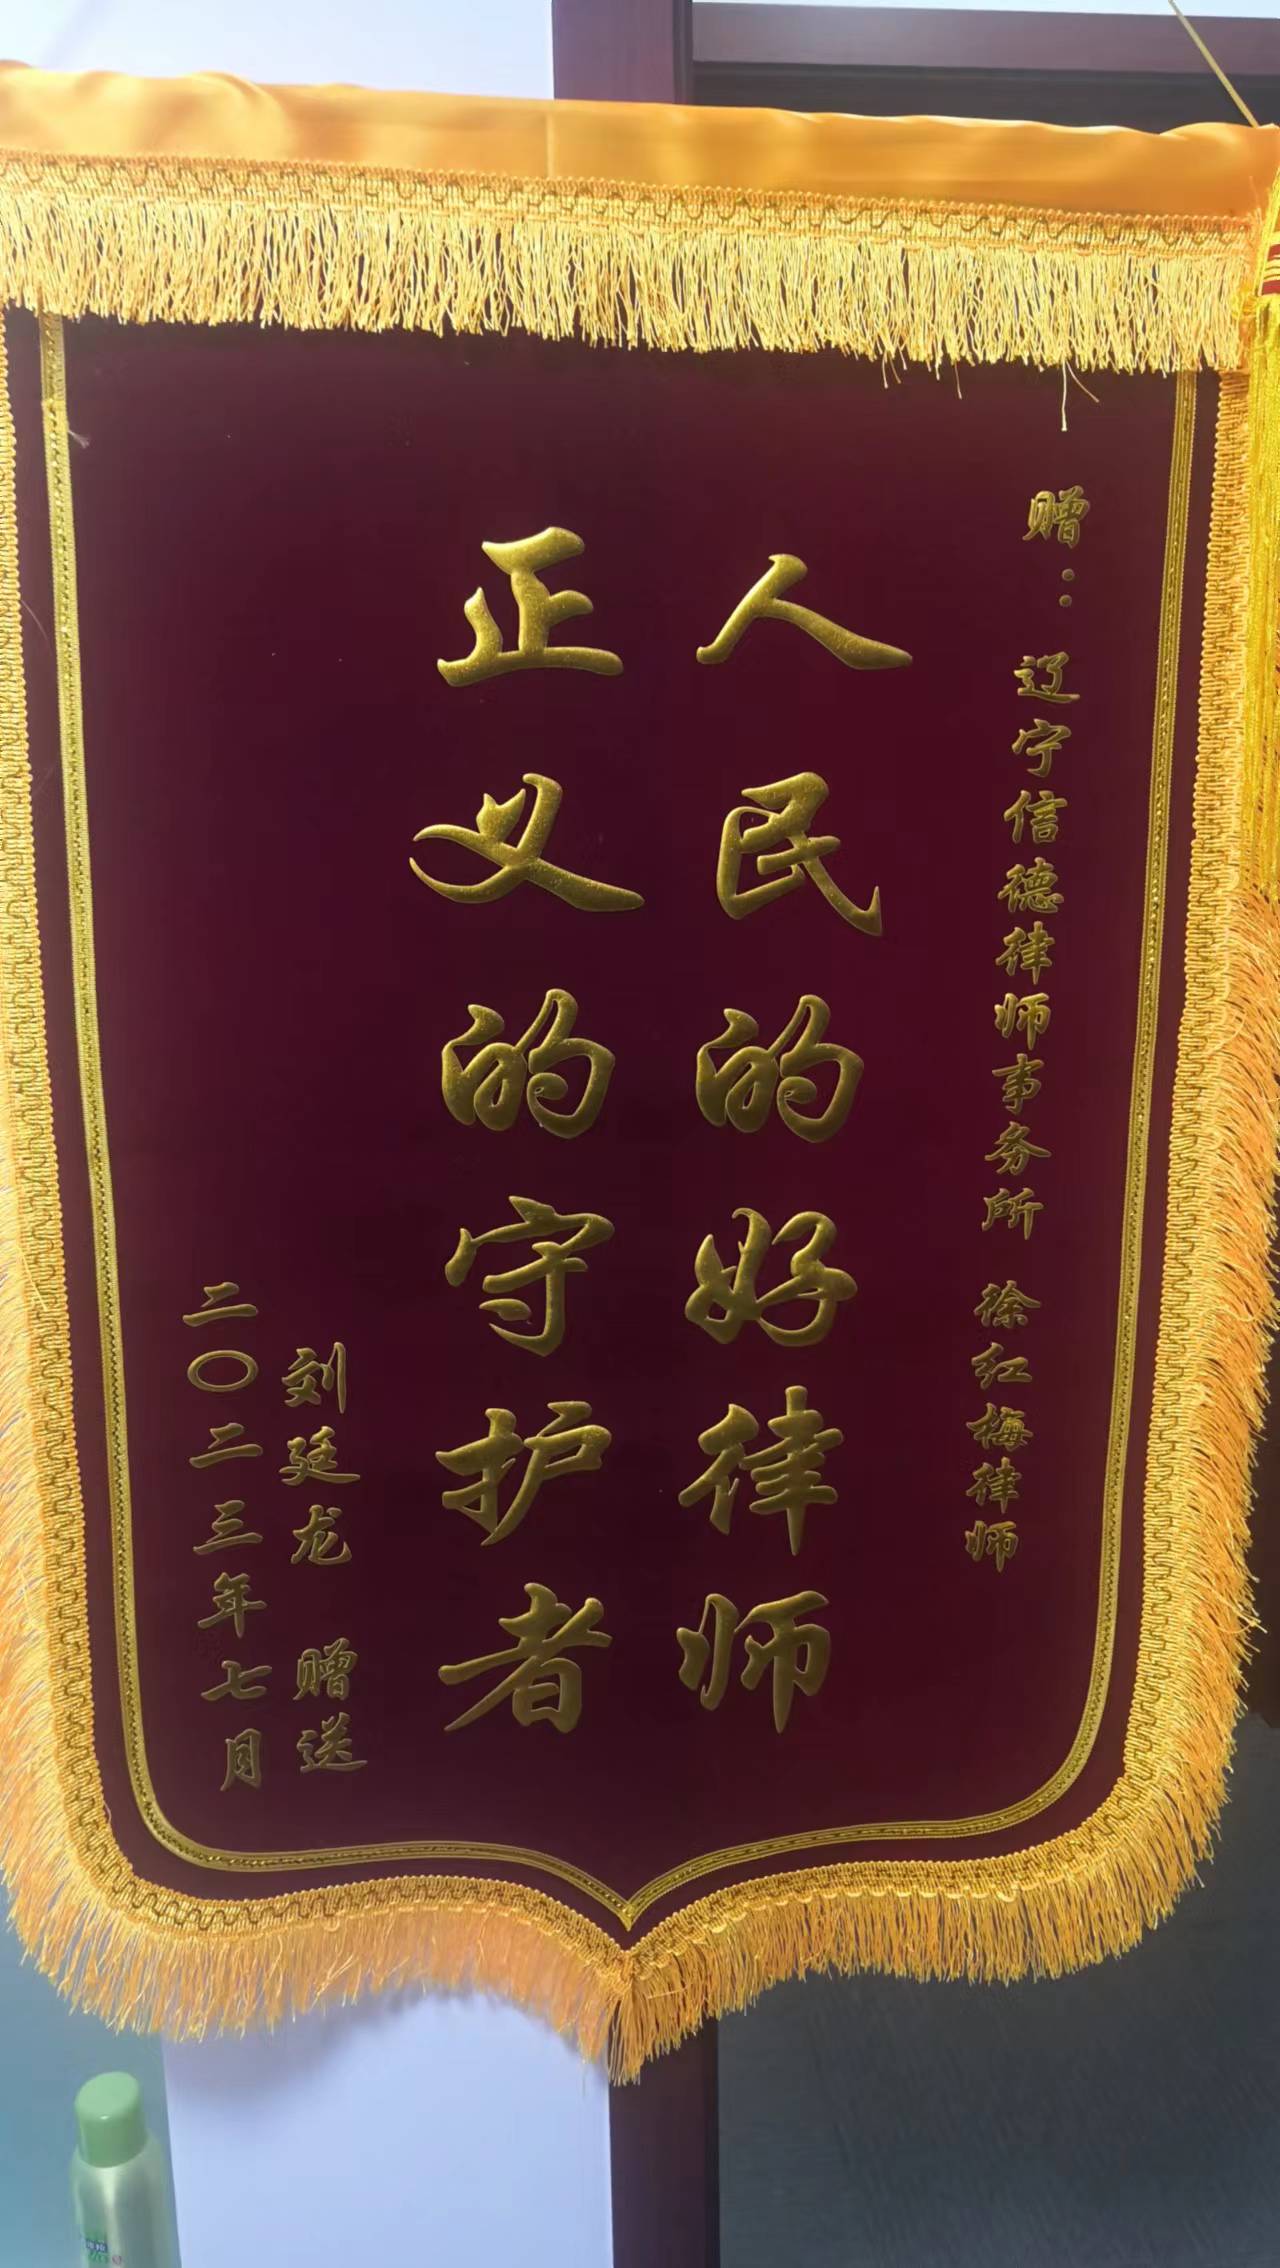 赠：辽宁信德律师事务所 徐红梅律师
人民的好律师
正义的守护者
刘廷龙 赠送
二〇二三年七月